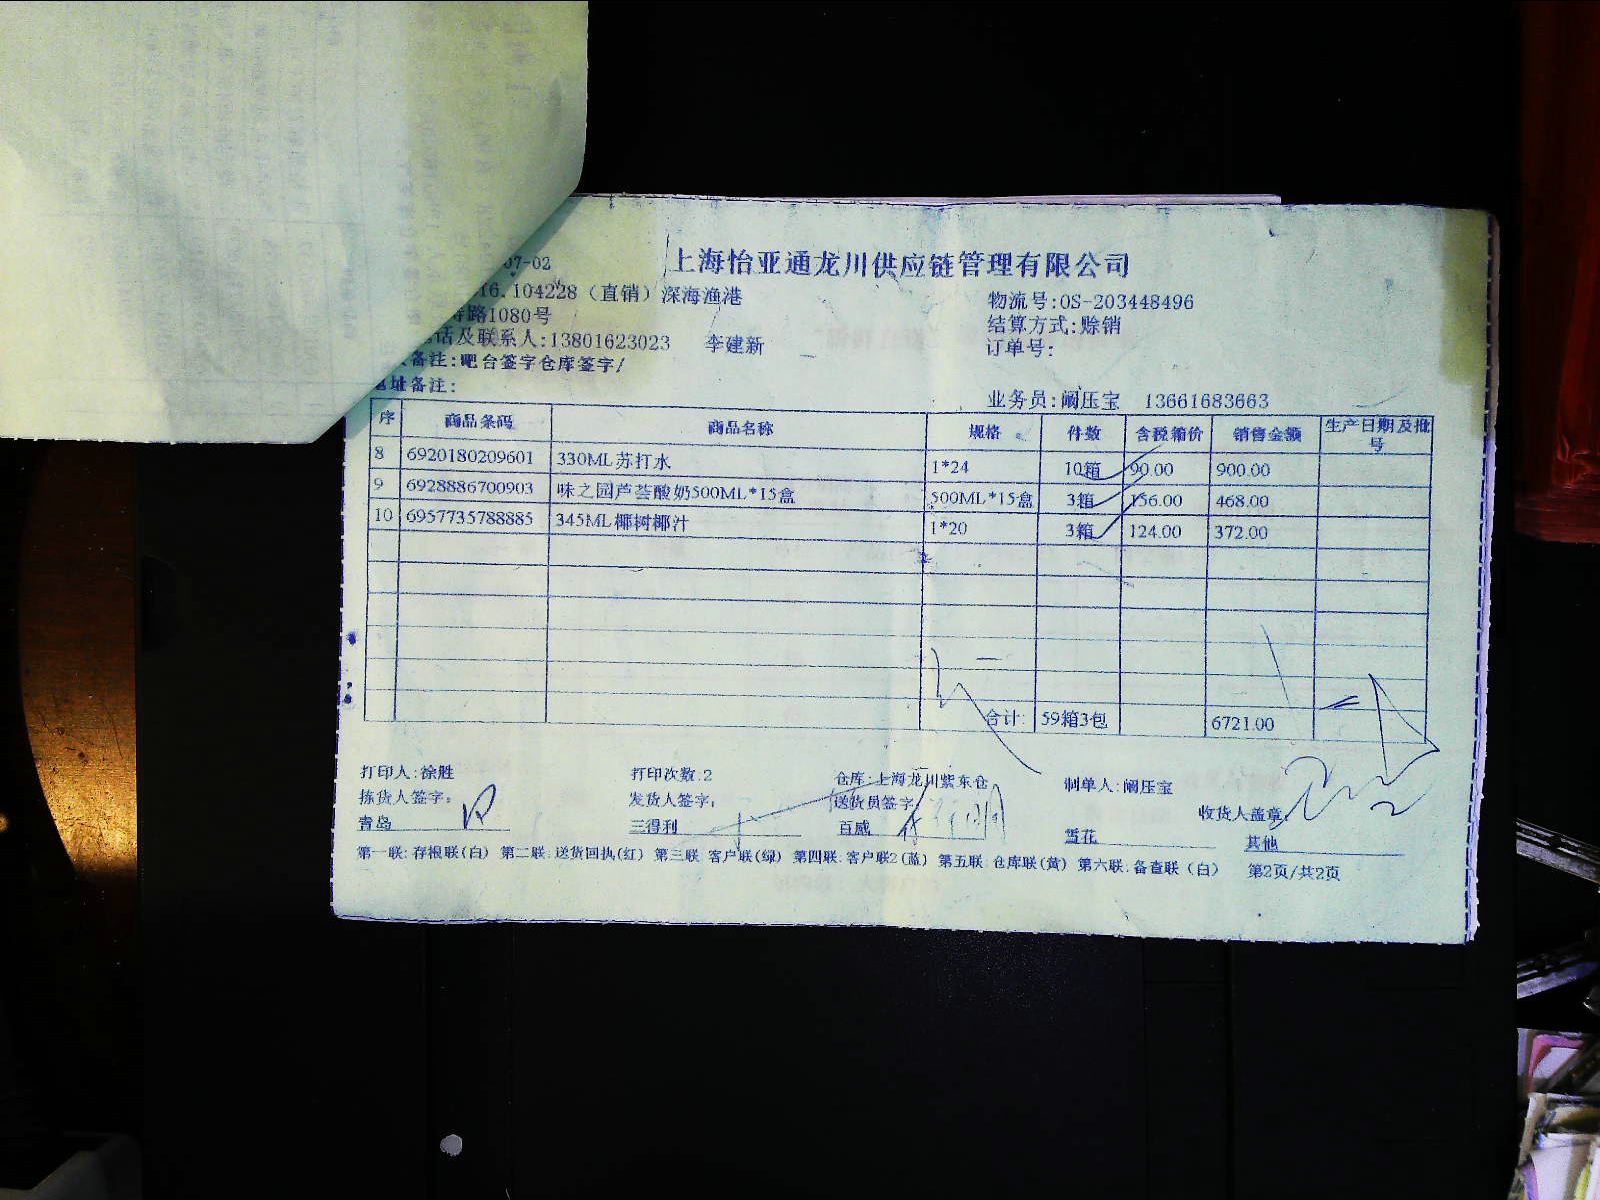 07-02
上海怡亚通龙川供应链管理有限公司
16.104228（直销）深海渔港
物流号:OS-203448496
路1080号
结算方式:赊销
话及联系人:13801623023 李建新
订单号:
备注:吧台签字仓库签字/
地址备注:
业务员:阚压宝 13661683663
序 商品条码 商品名称 规格 件数 含税箱价 销售金额 生产日期及批号
8 6920180209601 330ML苏打水 1*24 10箱 90.00 900.00
9 6928886700903 味之园芦荟酸奶500ML*15盒 500ML*15盒 3箱 156.00 468.00
10 6957735788885 345ML椰树椰汁 1*20 3箱 124.00 372.00
合计: 59箱3包 6721.00
打印人:徐胜 打印次数:2 仓库:上海龙川紫东仓 制单人:阚压宝
拣货人签字: 发货人签字: 送货员签字: 收货人盖章:
青岛 三得利 百威 雪花 其他
第一联:存根联(白) 第二联:送货回执(红) 第三联:客户联(绿) 第四联:客户联2(蓝) 第五联:仓库联(黄) 第六联:备查联(白) 第2页/共2页